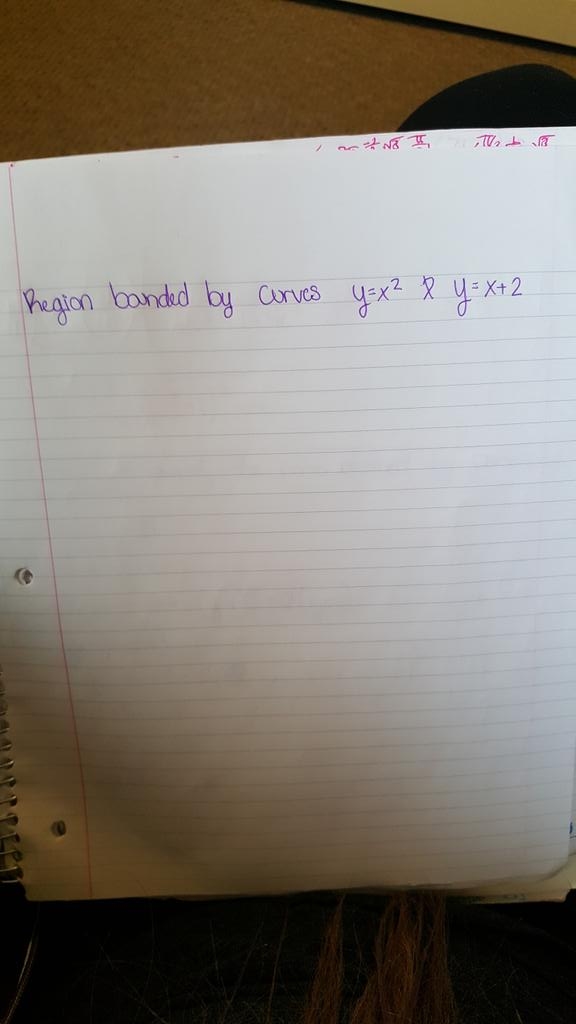 Region bounded by curves y=x² & y=x+2